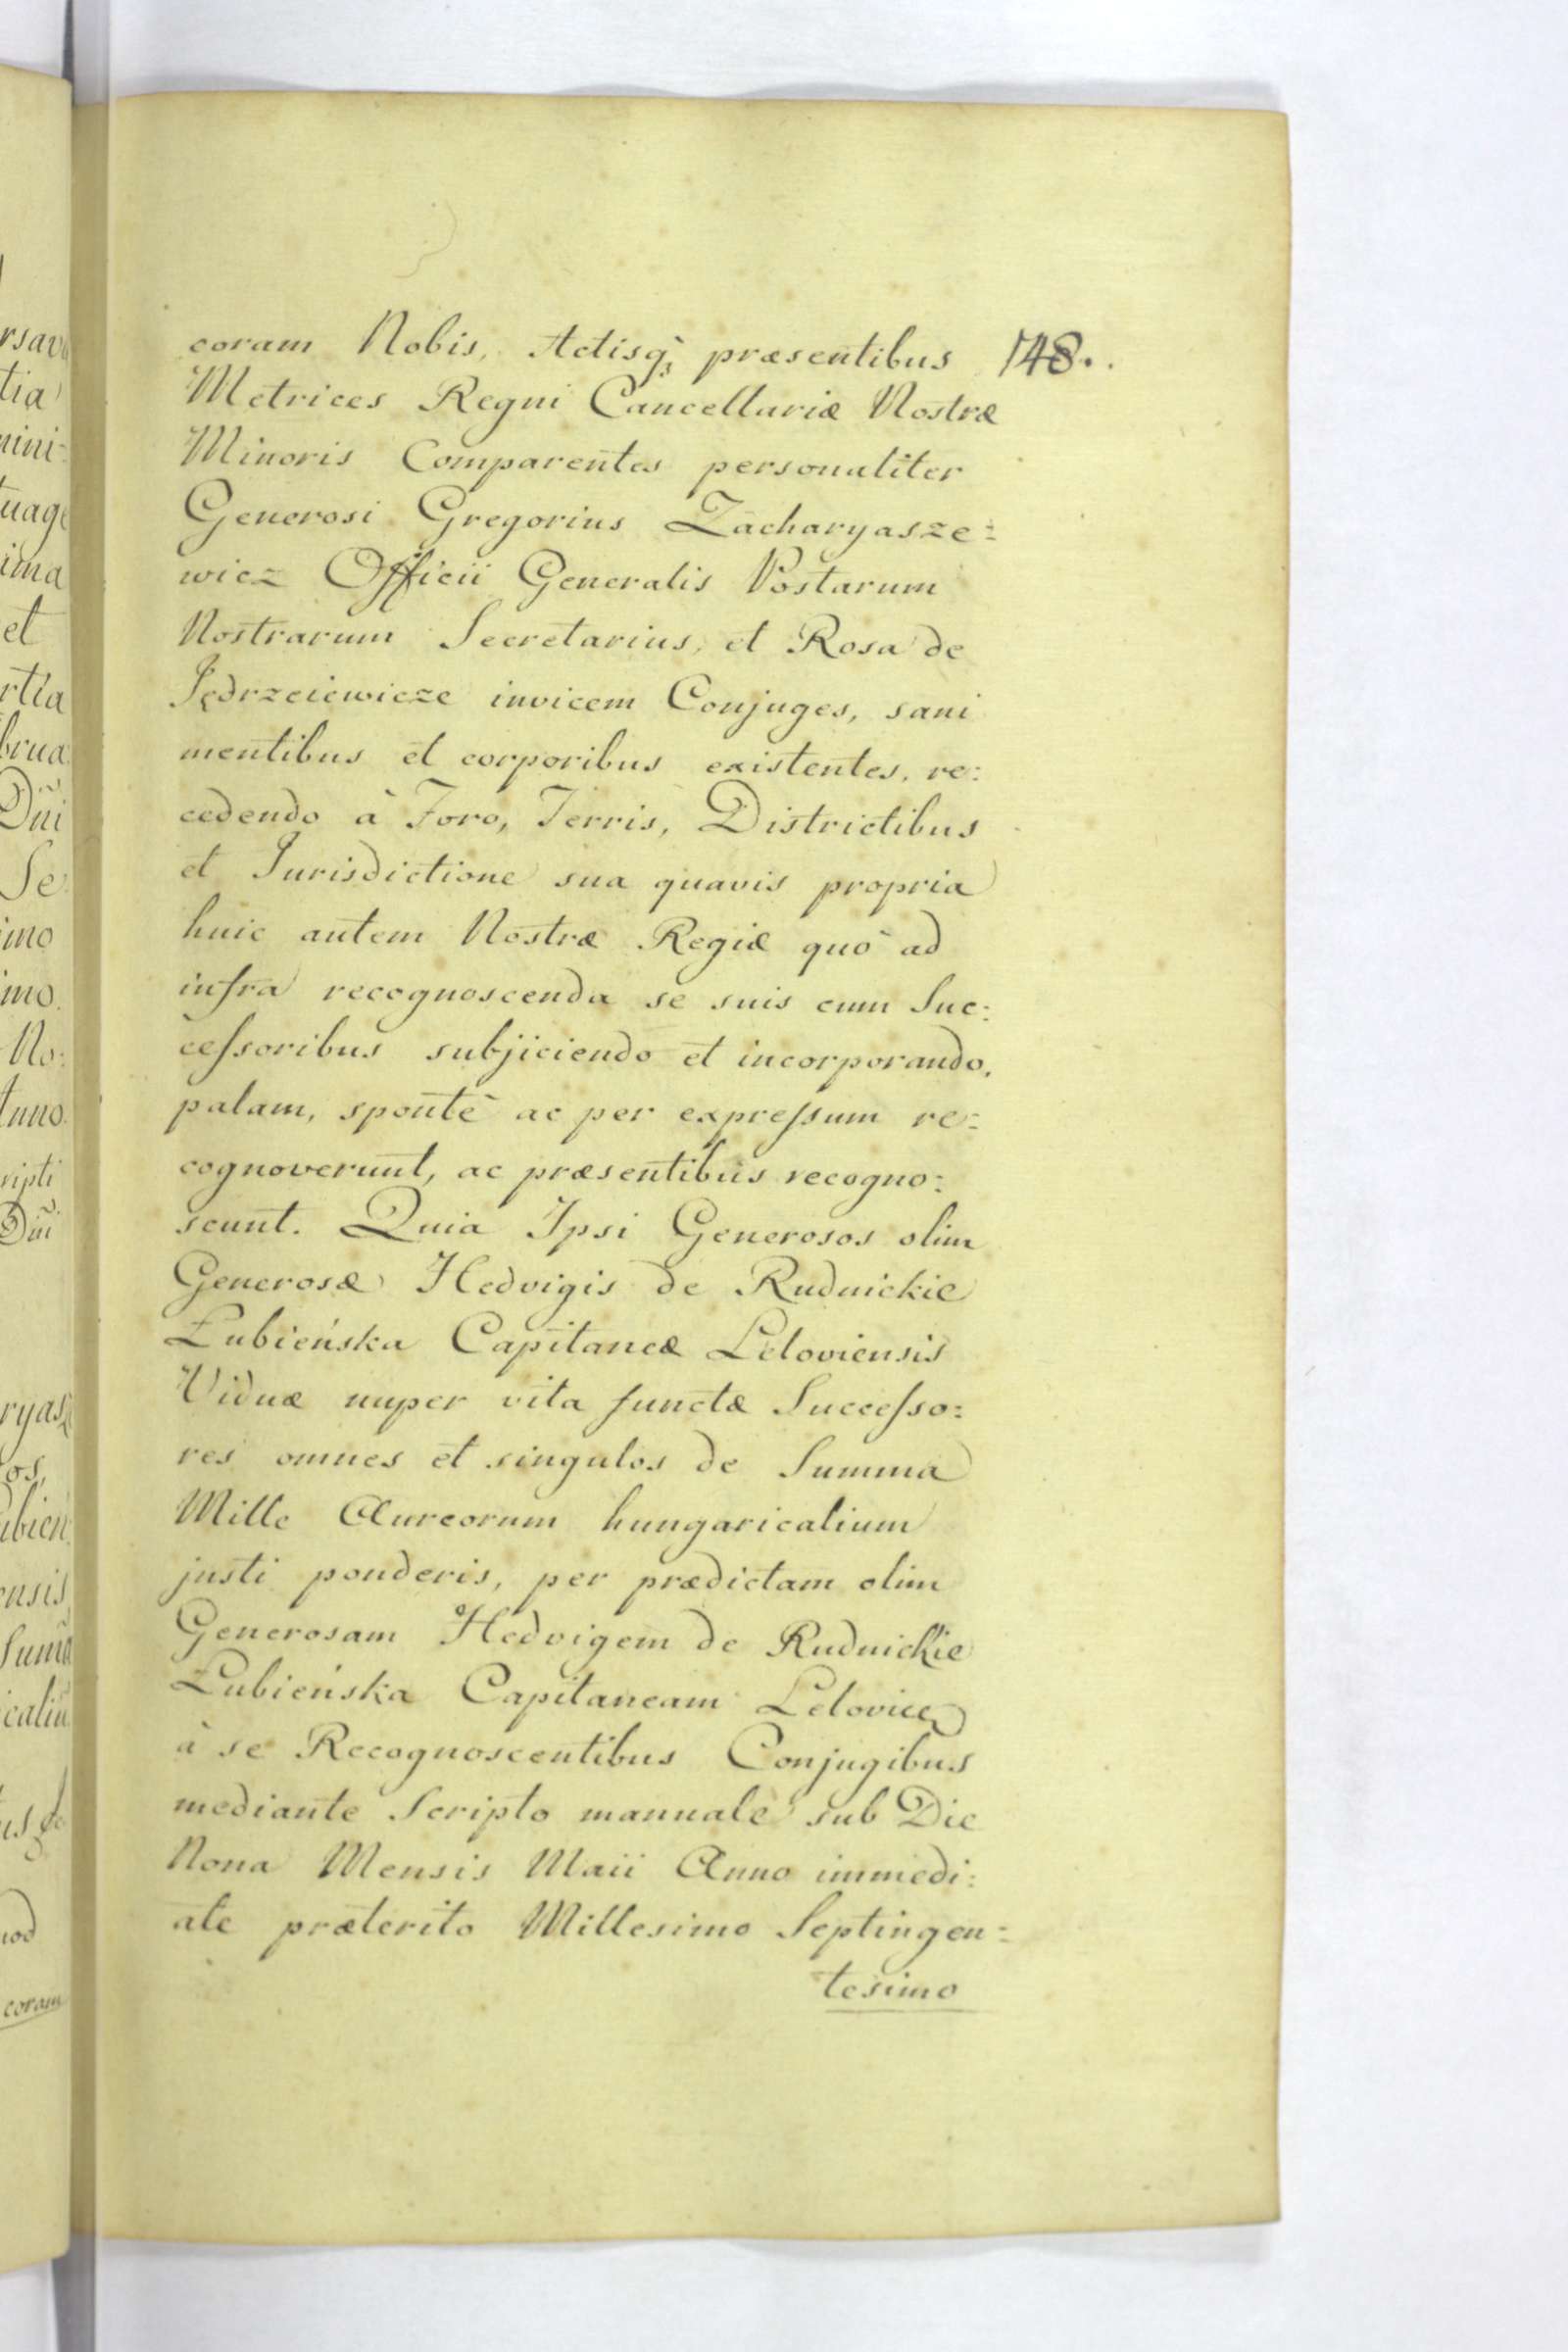 coram Nobis, Actisq; præsentibus 748.
Metrices Regni Cancellariæ Nostræ
Minoris Comparentes personaliter
Generosi Gregorius Zacharyasze=
wicz Officii Generalis Postarum
Nostrarum Secretarius, et Rosa de
Jędrzeiewicze invicem Conjuges, sani
mentibus et corporibus existentes, re:
cedendo à Foro, Terris, Districtibus
et Jurisdictione sua quavis propria
huic autem Nostræ Regiæ quò ad
infra recognoscenda se suis cum Suc:
ceſsoribus subjiciendo et incorporando,
palam, spontè ac per expreſsum re:
cognoverunt, ac præsentibus recogno:
scunt. Quia Ipsi Generosos olim
Generosæ Hedvigis de Rudnickie
Łubieńska Capitaneæ Leloviensis
Viduæ nuper vita functæ Succeſso:
res omnes et singulos de Summa
Mille Aureorum hungaricalium
justi ponderis, per prædictam olim
Generosam Hedvigem de Rudnickie
Łubieńska Capitaneam
à se Recognoscentibus Conjugibus
mediante Scripto manuale sub Die
Nona Mensis Maii Anno immedi:
ate præterito Millesimo Septingen=
tesimo